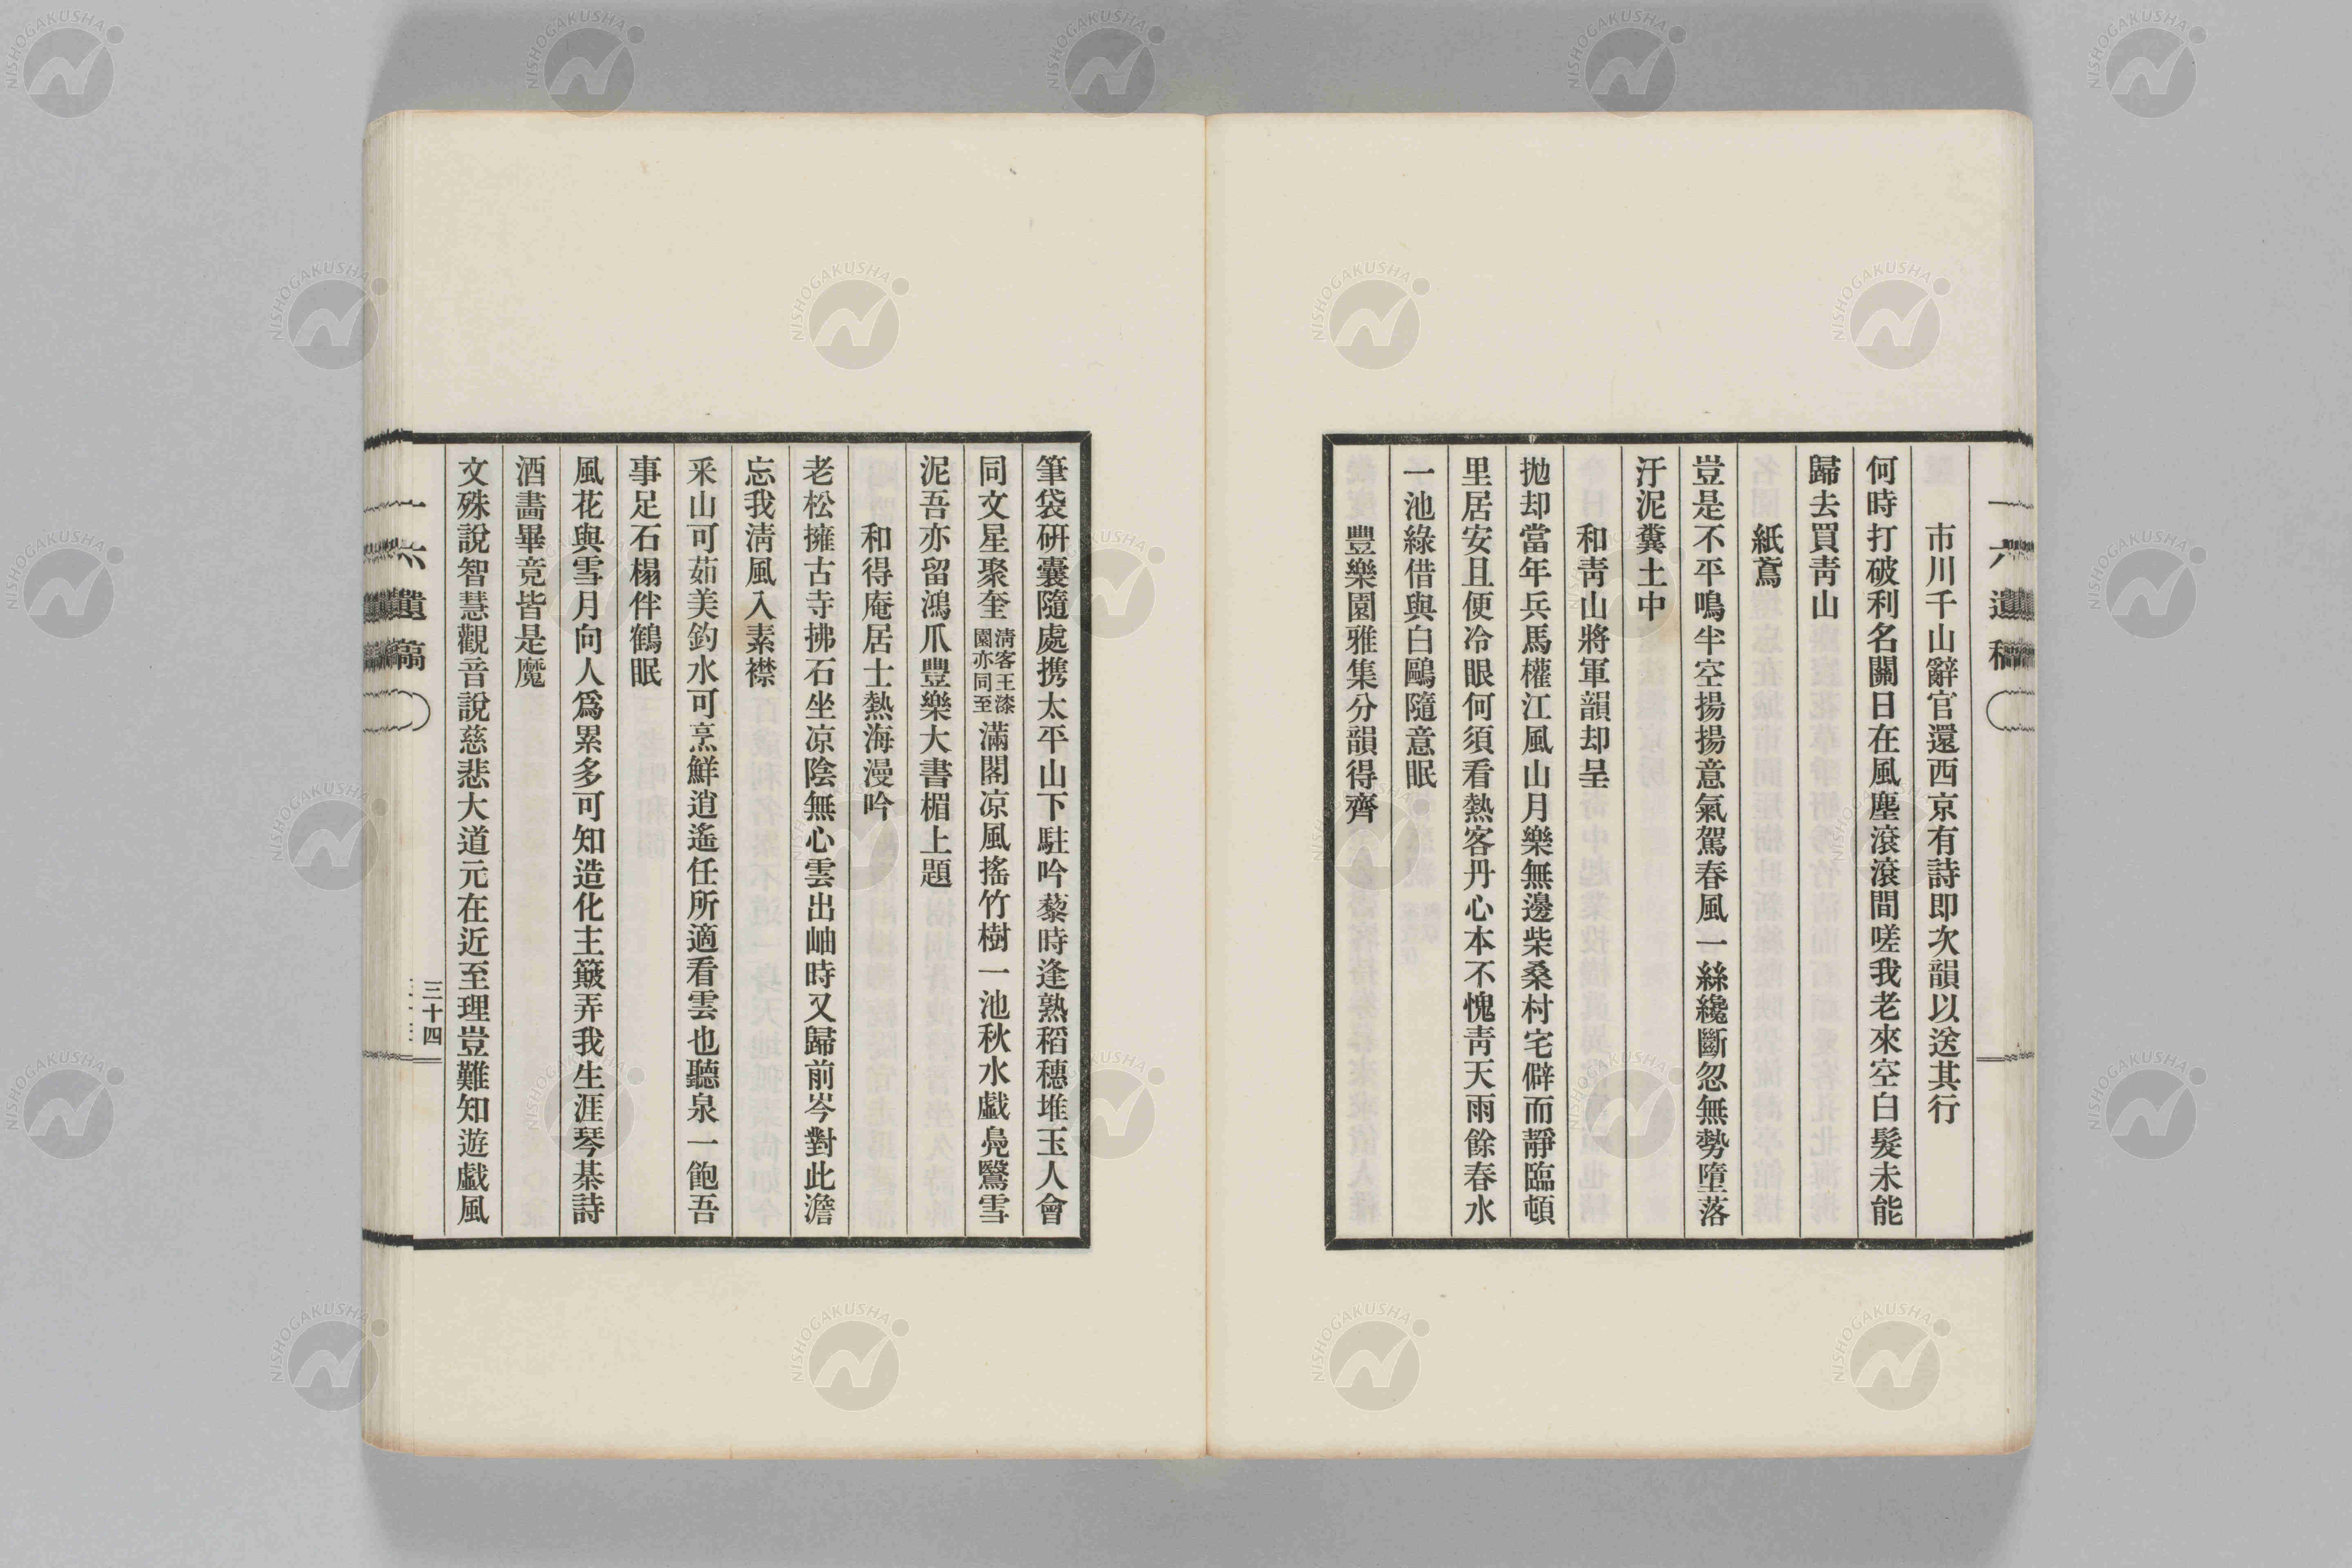 一六遺稿
市川千山辭官還西京有詩即次韻以送其行
何時打破利名關日在風塵滾滾間嗟我老來空白髮未能
歸去買靑山
紙鳶
豈是不平鳴半空揚揚意氣駕春風一絲纔斷忽無勢墮落
汙泥糞土中
和靑山將軍韻却呈
拋却當年兵馬權江風山月樂無邊柴桑村宅僻而靜臨頓
里居安且便冷眼何須看熱客丹心本不愧靑天雨餘春水
一池綠借與白鷗隨意眠
豐樂園雅集分韻得齊
筆袋硏囊隨處携太平山下駐吟藜時逢熟稻穗堆玉人會
同文星聚奎淸客王漆園亦同至滿閣凉風搖竹樹一池秋水戲鳧鷖雪
泥吾亦留鴻爪豐樂大書楣上題
和得庵居士熱海漫吟
老松擁古寺拂石坐凉陰無心雲出岫時又歸前岑對此澹
忘我淸風入素襟
釆山可茹美釣水可烹鮮逍遙任所適看雲也聽泉一飽吾
事足石榻伴鶴眠
風花與雪月向人爲累多可知造化主簸弄我生涯琴棊詩
酒畵畢竟皆是魔
文殊說智慧觀音說慈悲大道元在近至理豈難知遊戲風
一六遺稿
三十四
NISHOGAKUSHA